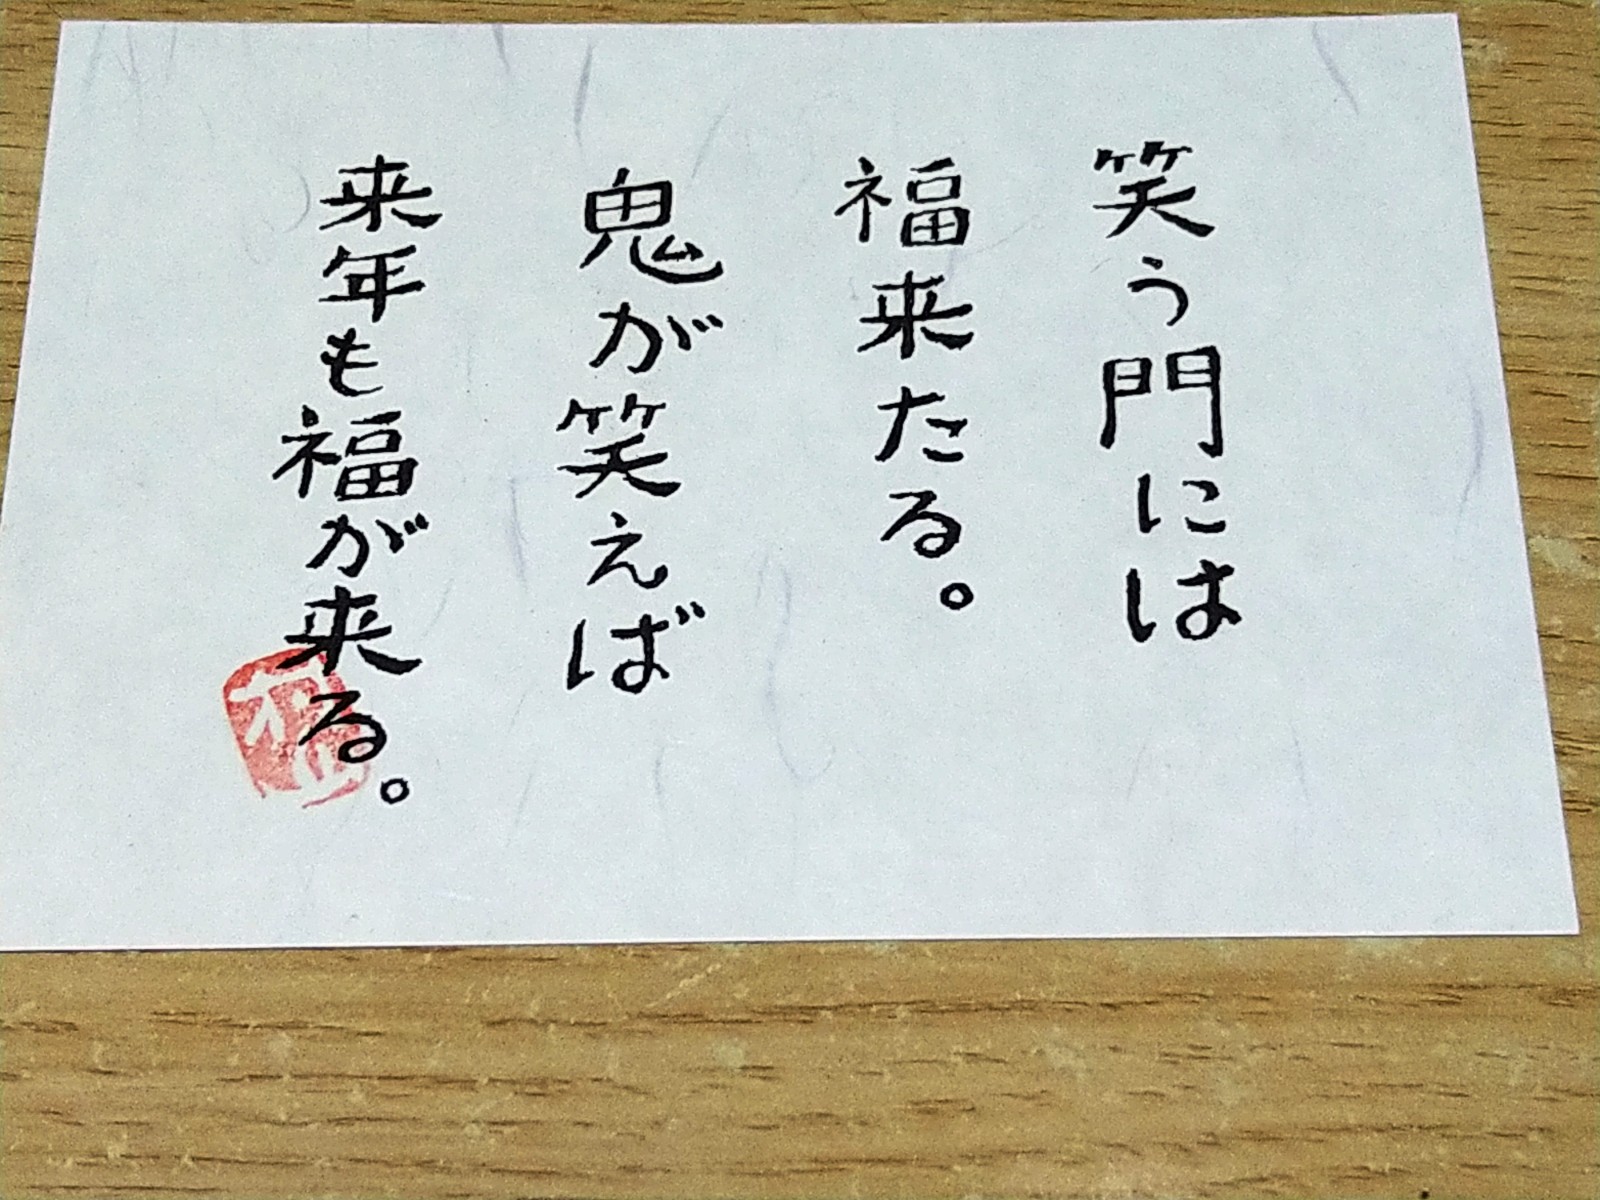 笑う門には
福来たる。
鬼が笑えば
来年も福が来る。